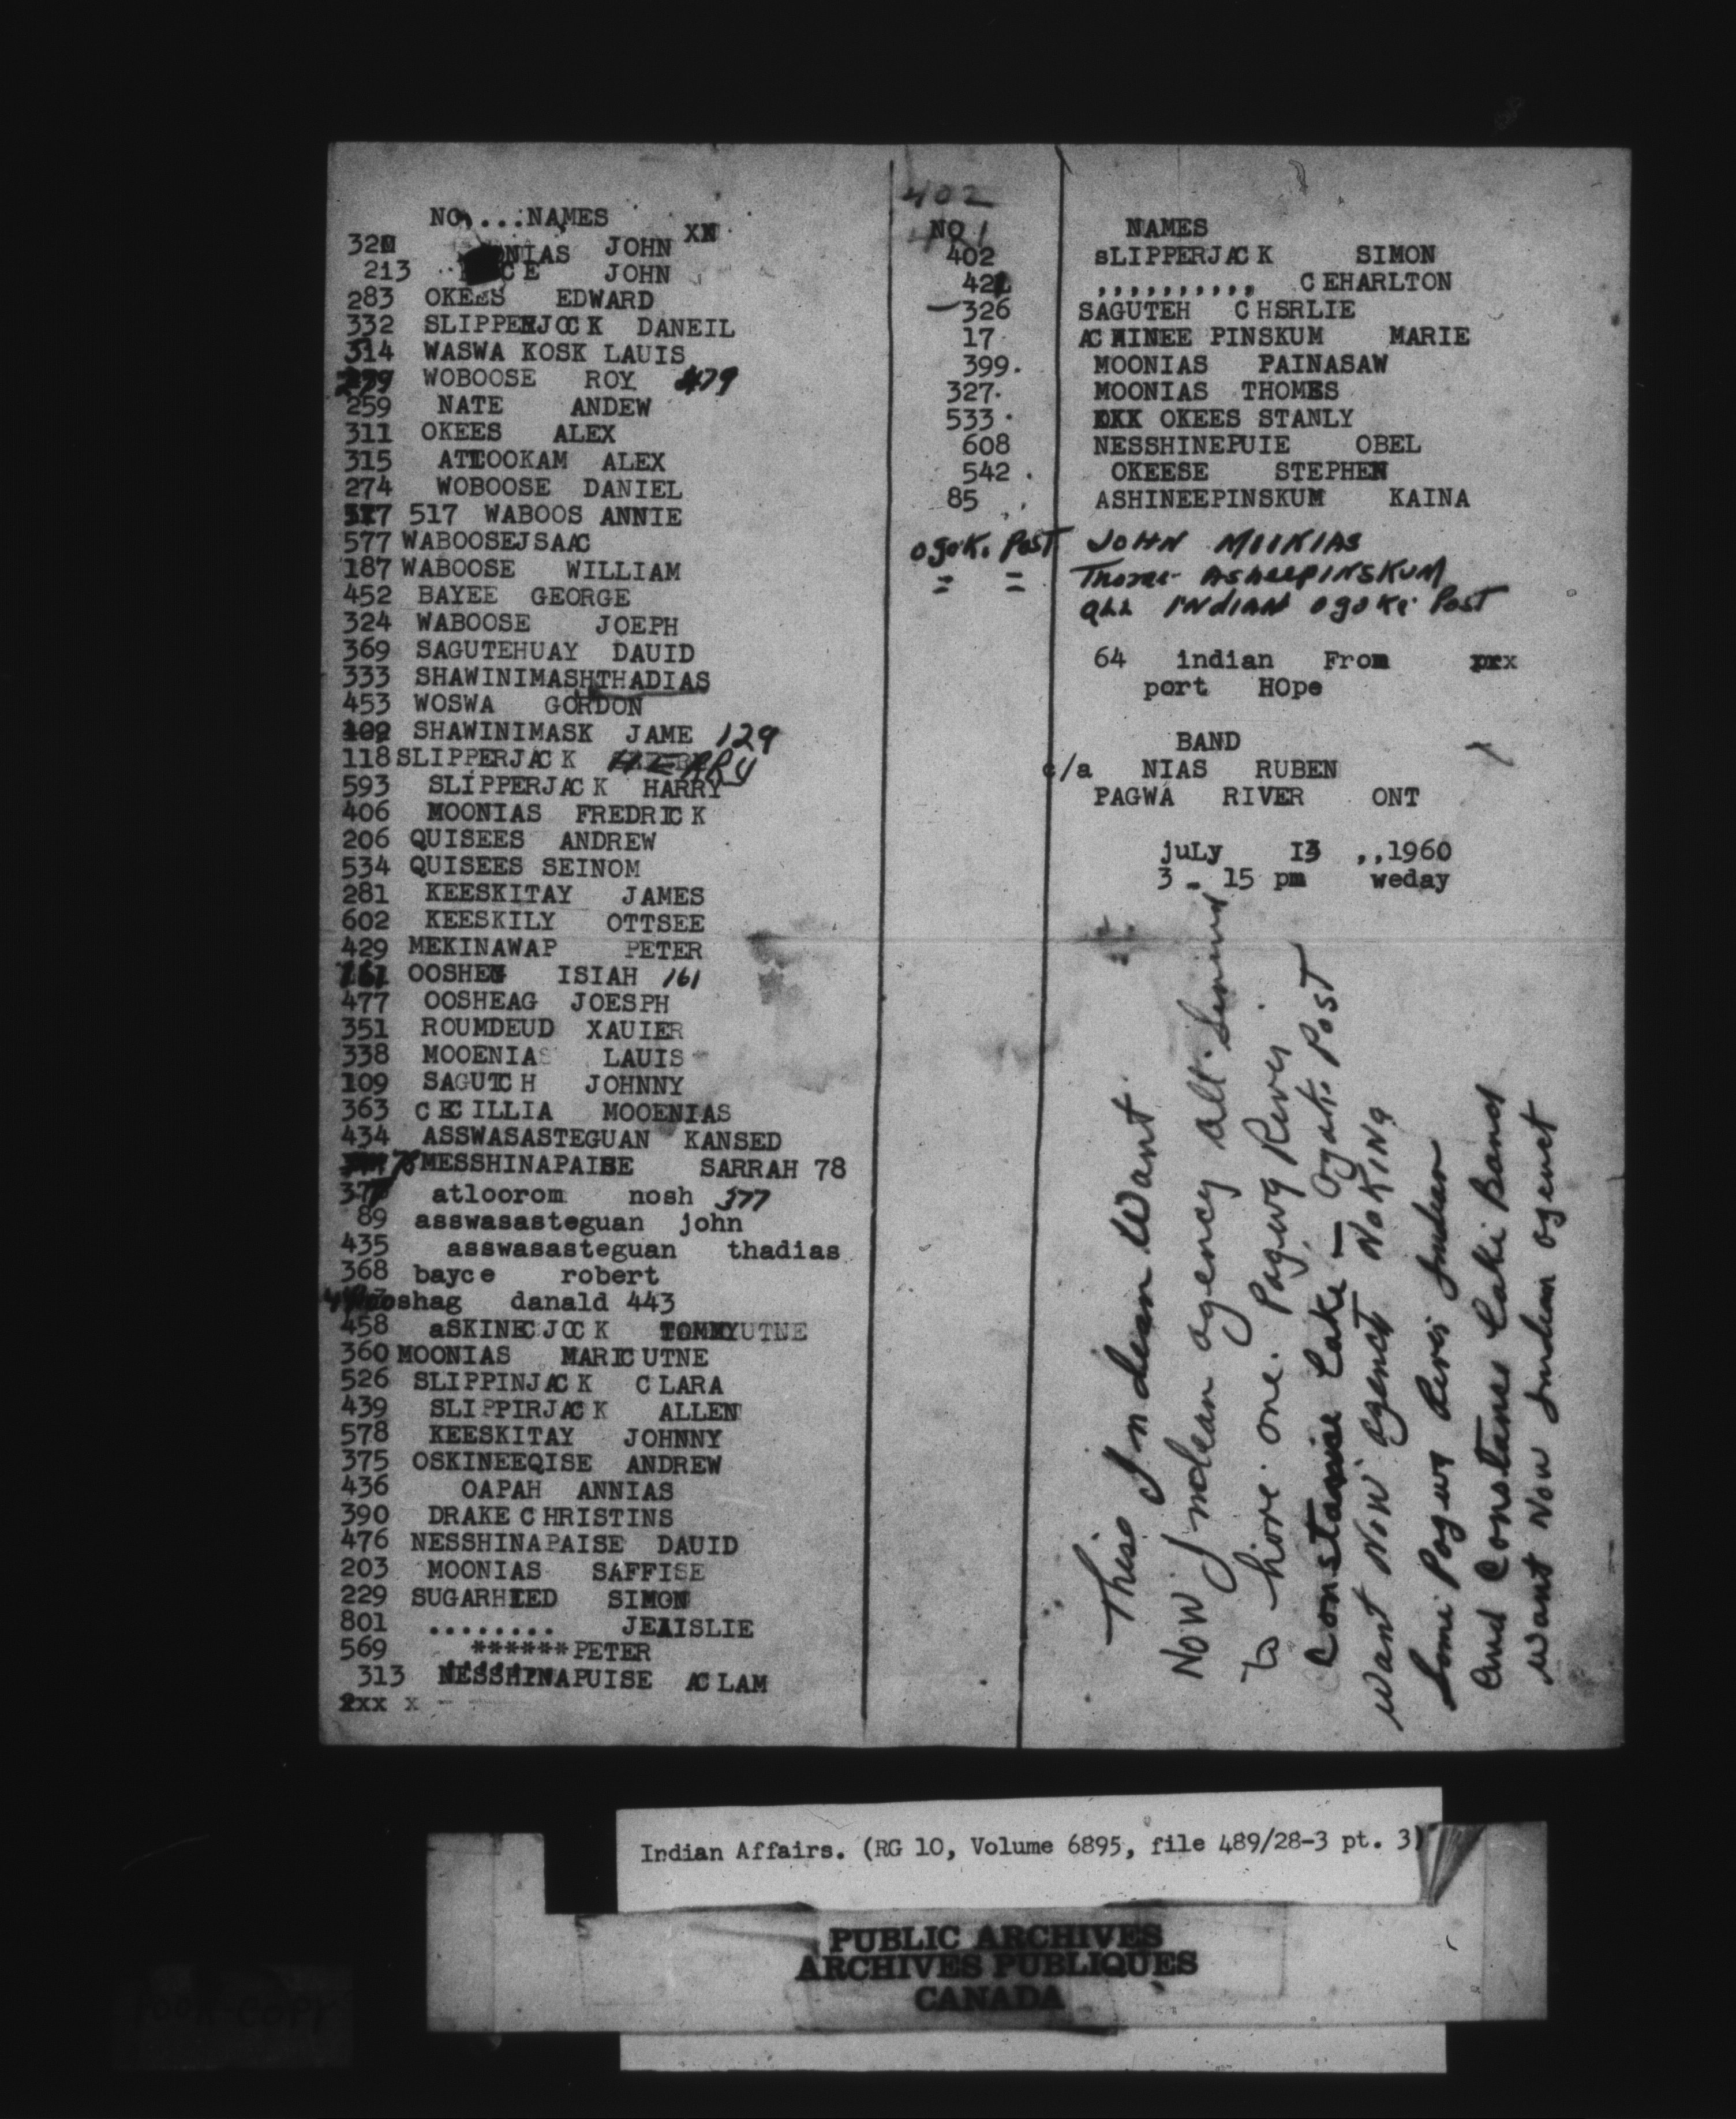 NO....NAMES XN
320 MOONIAS JOHN
213 JOHN
283 OKEES EDWARD
332 SLIPPERJOCK DANEIL
314 WASWA KOSK LAUIS
WOBOOSE ROY 479
259 NATE ANDEW
311 OKEES ALEX
315 ATLOOKAM ALEX
274 WOBOOSE DANIEL
517 WABOOS ANNIE
577 WABOOSEJSAAC
187 WABOOSE WILLIAM
452 BAYEE GEORGE
324 WABOOSE JOEPH
369 SAGUTEHUAY DAUID
333 SHAWINIMASHTHADIAS
453 WOSWA GORDON
SHAWINIMASK JAME 129
118 SLIPPERJACK HENRY
593 SLIPPERJACK HARRY
406 MOONIAS FREDRICK
206 QUISEES ANDREW
534 QUISEES SEINOM
281 KEESKITAY JAMES
602 KEESKILY OTTSEE
429 MEKINAWAP PETER
161 OOSHEG ISIAH 161
477 OOSHEAG JOESPH
351 ROUMDEUD XAUIER
338 MOOENIAS LAUIS
109 SAGUTCH JOHNNY
363 CECILLIA MOOENIAS
434 ASSWASASTEGUAN KANSED
78 MESSHINAPAISE SARRAH 78
377 atloorom nosh 377
89 asswasasteguan john
435 asswasasteguan thadias
368 bayce robert
ooshag danald 443
458 aSKINECJOCK TOMMYUTNE
360 MOONIAS MARICUTNE
526 SLIPPINJACK CLARA
439 SLIPPIRJACK ALLEN
578 KEESKITAY JOHNNY
375 OSKINEEQISE ANDREW
436 OAPAH ANNIAS
390 DRAKE CHRISTINS
476 NESSHINAPAISE DAUID
203 MOONIAS SAFFISE
229 SUGARHEED SIMON
801 ........ JEAISLIE
569 ******PETER
313 NESSHINAPUISE ACLAM
2xx x
402
NO NAMES
402 sLIPPERJACK SIMON
421 ,,,,,,,,,, CEHARLTON
326 SAGUTEH CHSRLIE
17 ACHINEE PINSKUM MARIE
399. MOONIAS PAINASAW
327. MOONIAS THOMES
533. OKEES STANLY
608 NESSHINEPUIE OBEL
542. OKEESE STEPHEN
85 ASHINEEPINSKUM KAINA
ogoki Post JOHN MOIKIAS
= = Thomas AsheepINSKUM
ALL INdIAN ogoki Post
64 indian From prx
port HOpe
BAND
c/a NIAS RUBEN
PAGWA RIVER ONT
juLy I3 ,,1960
3 - 15 pm weday
This Indian want
NOW Indian agency all
to have one. Pagwa River
Constanse Lake - Ogoki Post
want NOW agenct NOKING
Some Pagwa River Indian
and Constanse Lake Band
want Now Indian agenct
Indian Affairs. (RG 10, Volume 6895, file 489/28-3 pt. 3)
PUBLIC ARCHIVES
ARCHIVES PUBLIQUES
CANADA
POOR COPY